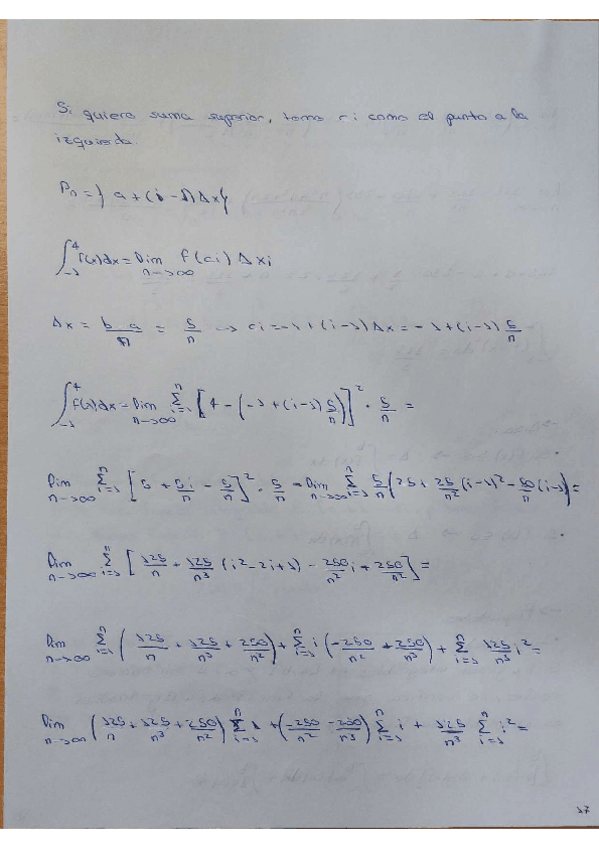 Si quiero suma superior, tomo ci como el punto a la
izquierda.
Pn = { a + (i - 1) Δx }
∫_{-1}^{4} f(x)dx = lim_{n->∞} f(ci) Δxi
Δx = (b - a)/n = 5/n -> ci = -1 + (i-1) Δx = -1 + (i-1) 5/n
∫_{-1}^{4} f(x)dx = lim_{n->∞} Σ_{i=1}^{n} [4 - (-1 + (i-1) 5/n)]^2 · 5/n =
lim_{n->∞} Σ_{i=1}^{n} [5 + 5i/n - 5/n]^2 · 5/n = lim_{n->∞} Σ_{i=1}^{n} 5/n (25 + 25/n^2 (i-1)^2 - 50/n (i-1)) =
lim_{n->∞} Σ_{i=1}^{n} [125/n + 125/n^3 (i^2 - 2i + 1) - 250/n^2 i + 250/n^2] =
lim_{n->∞} Σ_{i=1}^{n} (125/n + 125/n^3 + 250/n^2) + Σ_{i=1}^{n} i (-250/n^2 + 250/n^3) + Σ_{i=1}^{n} 125/n^3 i^2 =
lim_{n->∞} (125/n + 125/n^3 + 250/n^2) Σ_{i=1}^{n} 1 + (-250/n^2 - 250/n^3) Σ_{i=1}^{n} i + 125/n^3 Σ_{i=1}^{n} i^2 =
17